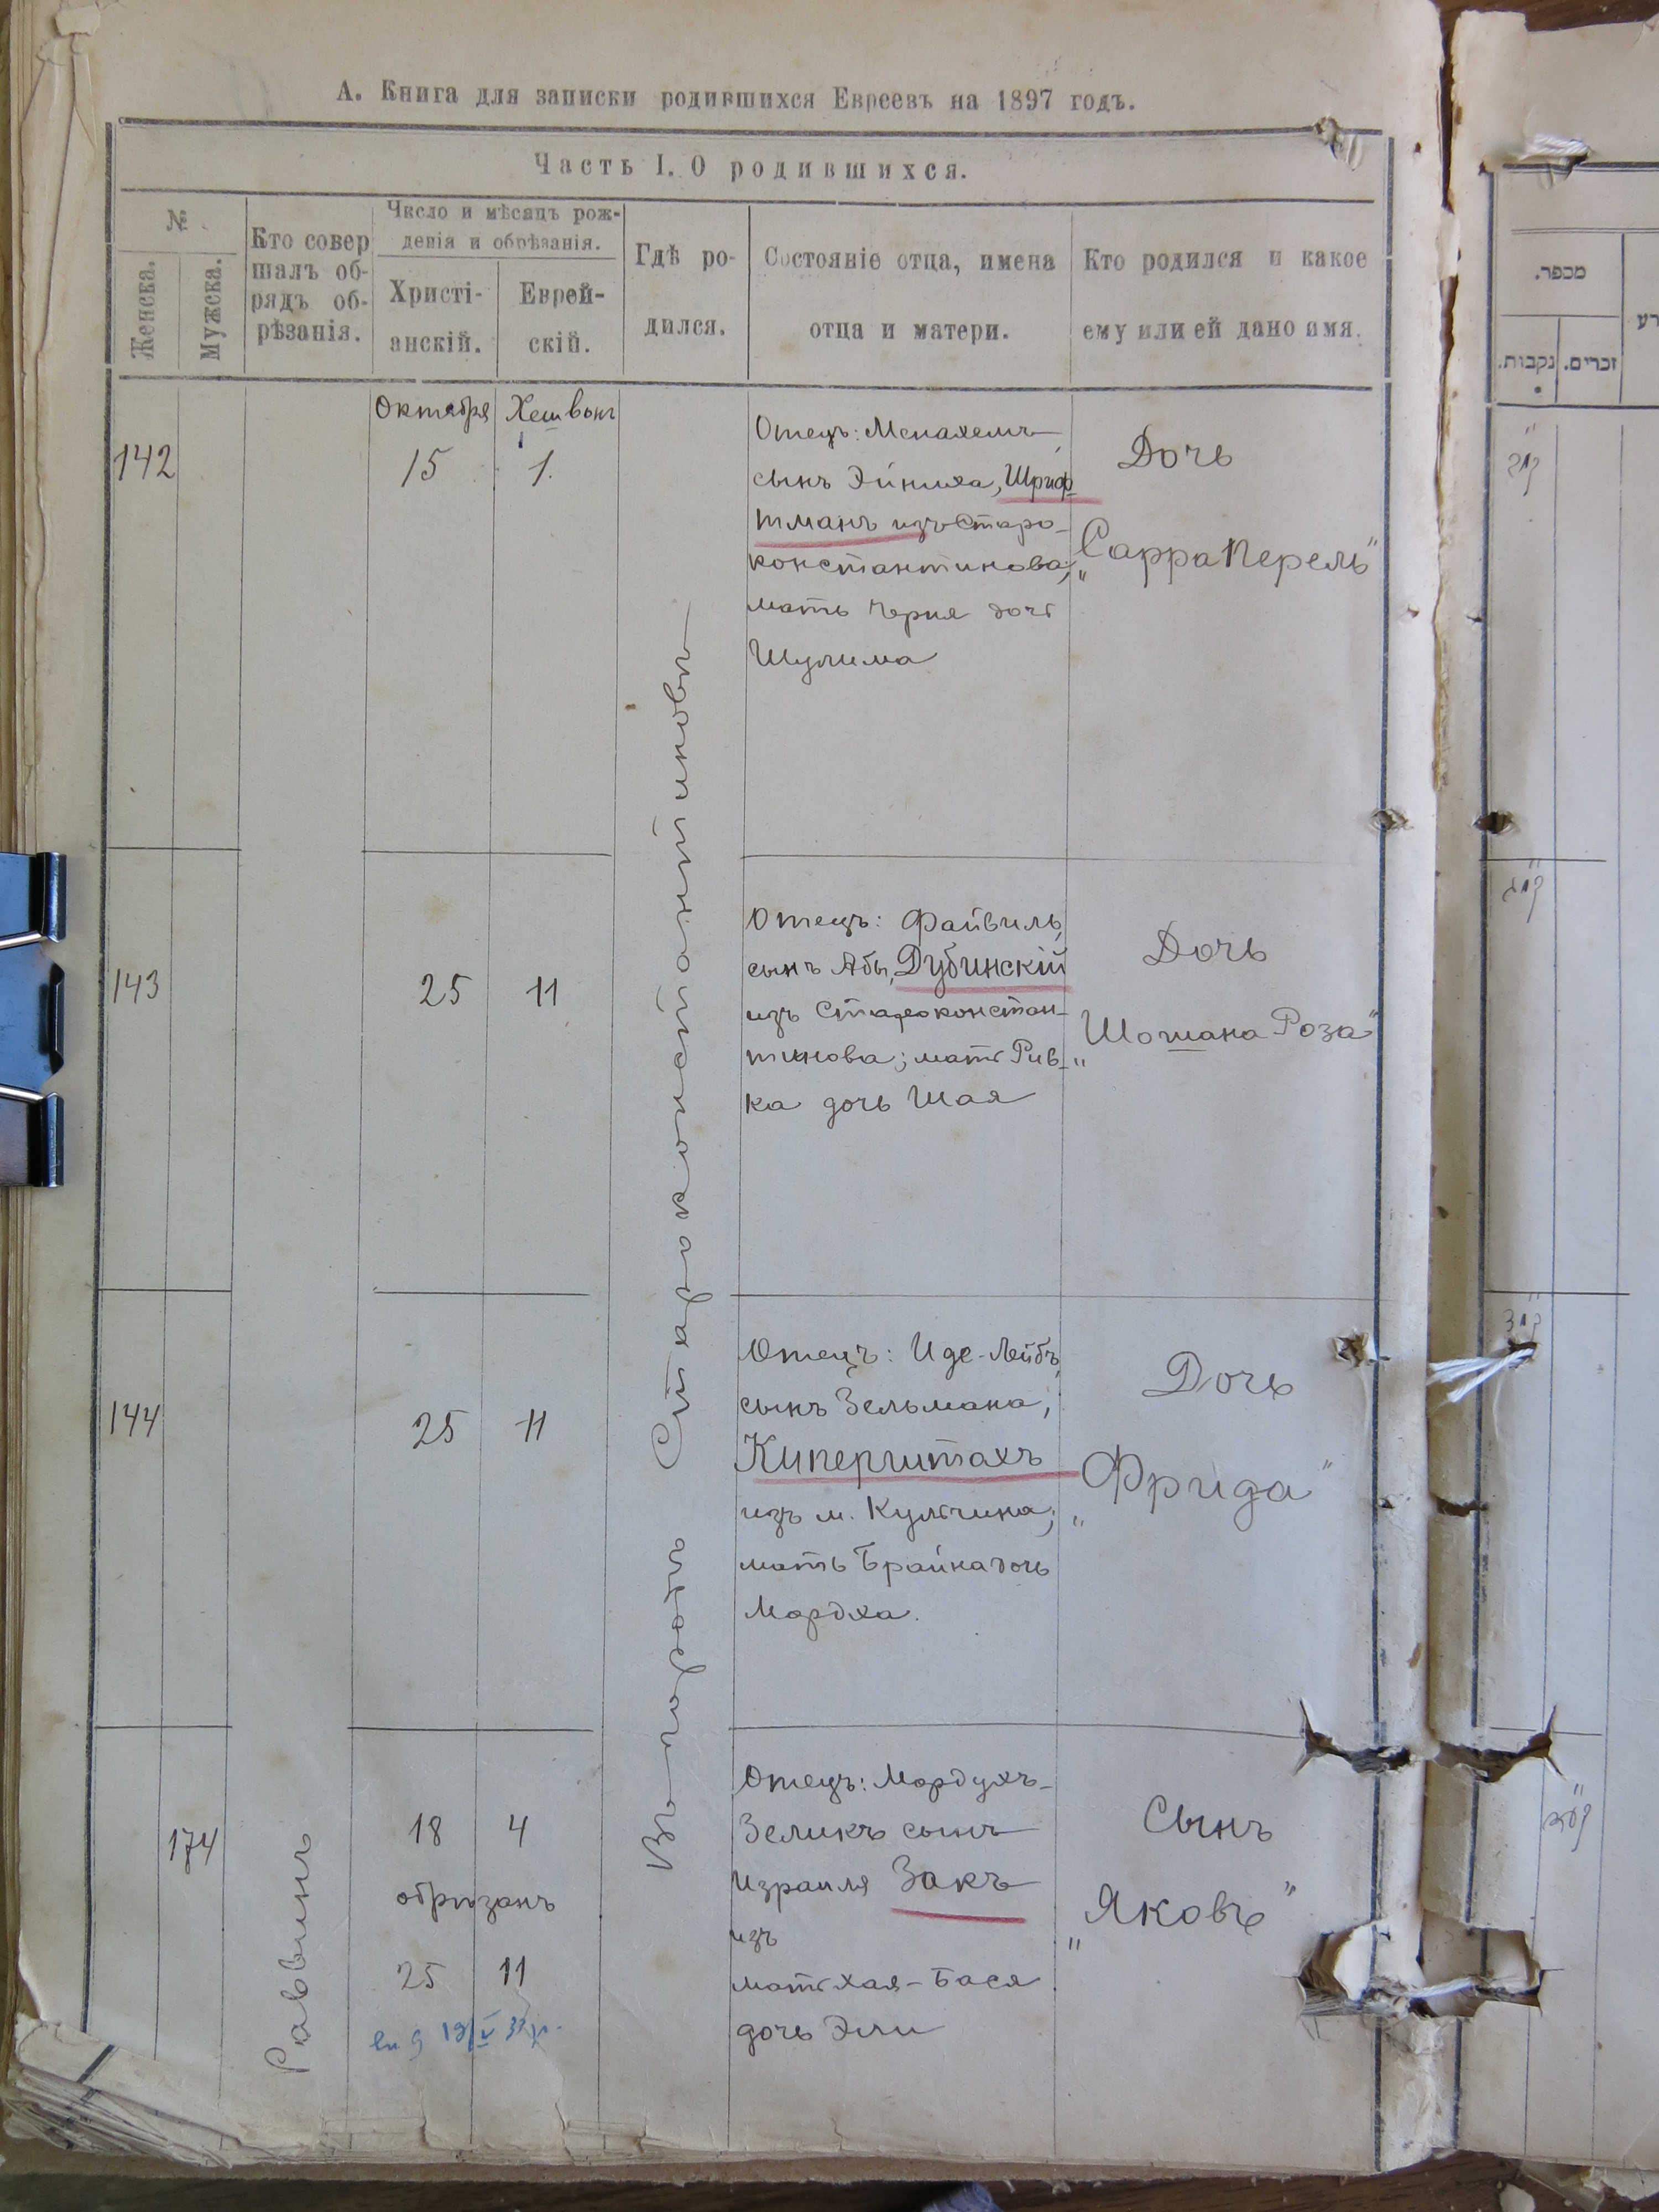 А. Книга для записки родившихся Евреевъ на 1897 годъ.
Часть I. О родившихся.
№
Женска.
Мужска.
Кто совер
шалъ об-
рядъ об-
рѣзанія.
Число и мѣсяцъ рож-
денія и обрѣзанія.
Христі-
анскій.
Еврей-
скій.
Гдѣ ро-
дился.
Состояніе отца, имена
отца и матери.
Кто родился и какое
ему или ей дано имя.
Октября
Хешвонъ
142
15
1.
Отецъ: Менахемъ
сынъ Эйниха, Шриф-
тманъ изъ Старо-
константинова;
мать Черня дочь
Шулима
Дочь
„Сарра Перель“
143
25
11
Отецъ: Файвиль,
сынъ Абы, Дубинскій
изъ Староконстан-
тинова; мать Рив-
ка дочь Шая
Дочь
„Шошана Роза“
144
25
11
Отецъ: Иде-Лейбъ,
сынъ Зельмана,
Киперштахъ
изъ м. Кульчина;
мать Брайна дочь
Мордха.
Дочь
„Фрида“
174
Раввинъ
18
4
обрѣзанъ
25
11
Въ городѣ Староконстантиновѣ
Отецъ: Мордухъ-
Зеликъ сынъ
Израиля Закъ
изъ
мать Хая-Бася
дочь Эли
Сынъ
„Яковъ“
מספר.
נקבות.
זכרים.
קמב
קמג
קמד
קעד